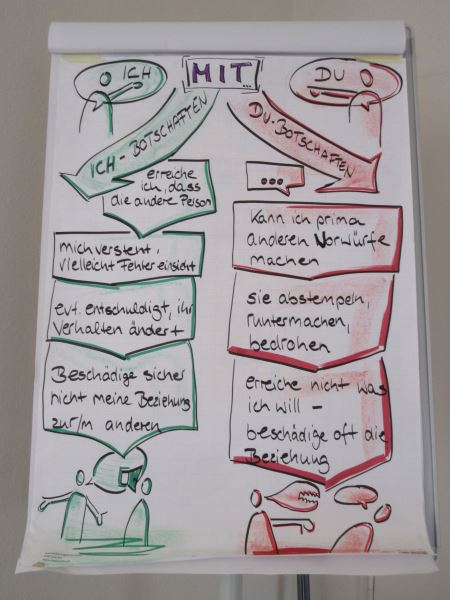 MIT
...
ICH
ICH-BOTSCHAFTEN
erreiche
ich, dass
die andere Person
mich versteht,
vielleicht Fehler einsieht
evt. entschuldigt, ihr
Verhalten ändert
Beschädige sicher
nicht meine Beziehung
zur/m anderen
DU
DU-BOTSCHAFTEN
...
kann ich prima
anderen Vorwürfe
machen
sie abstempeln,
runtermachen,
bedrohen
erreiche nicht was
ich will –
beschädige oft die
Beziehung